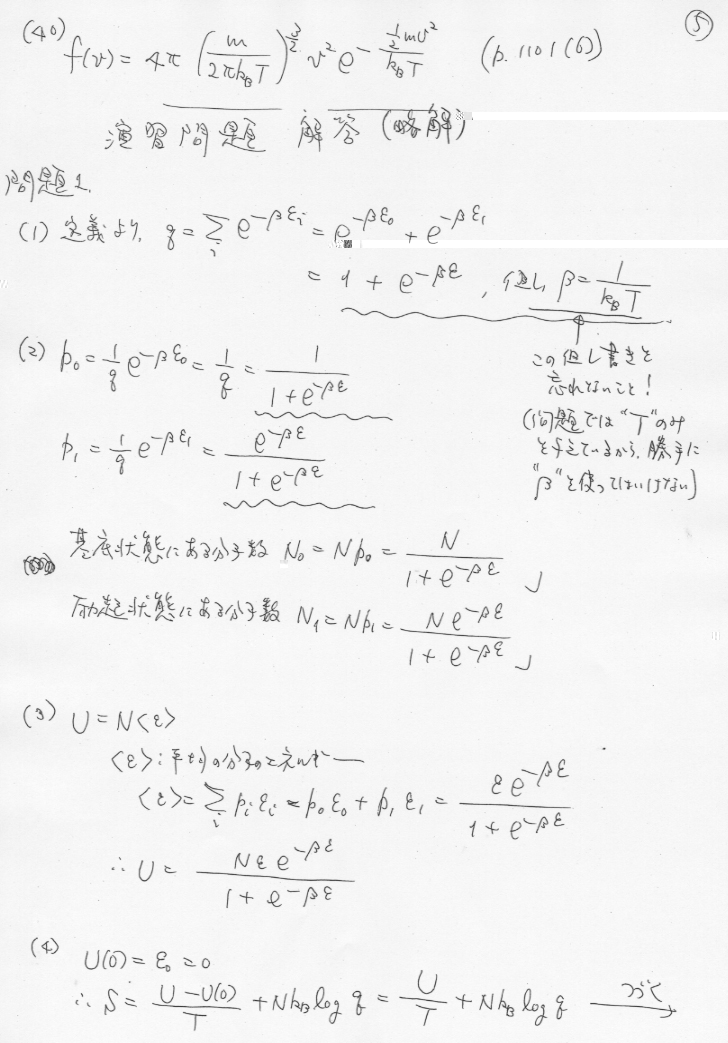 ⑤
(40) f(v) = 4π (m/2πk_BT)^{3/2} v² e^{-\frac{\frac{1}{2}mv²}{k_BT}} (p. 1101 (6))
演習問題 解答 (略解)
問題1.
(1) 定義より, q = Σ_i e^{-βε_i} = e^{-βε_0} + e^{-βε_1}
= 1 + e^{-βε}, 但し β = 1/k_BT
この但し書きを
忘れないこと!
(問題では "T" のみ
を与えているから, 勝手に
"β" を使ってはいけない)
(2) p_0 = 1/q e^{-βε_0} = 1/q = 1/(1 + e^{-βε})
p_1 = 1/q e^{-βε_1} = e^{-βε}/(1 + e^{-βε})
基底状態にある分子数 N_0 = Np_0 = N/(1 + e^{-βε})」
励起状態にある分子数 N_1 = Np_1 = Ne^{-βε}/(1 + e^{-βε})」
(3) U = N<ε>
<ε> : 平均の分子のエネルギー
<ε> = Σ_i p_i ε_i = p_0 ε_0 + p_1 ε_1 = εe^{-βε}/(1 + e^{-βε})
∴ U = Nεe^{-βε}/(1 + e^{-βε})
(4) U(0) = ε_0 = 0
∴ S = (U - U(0))/T + Nk_B log q = U/T + Nk_B log q つづく→